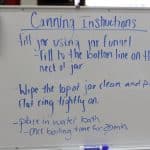 Canning Instructions
fill jar using jar funnel
- fill to the bottom line on the
neck of jar
Wipe the top of jar clean and p
flat ring tightly on.
- place in water bath
- start boiling time for 20min